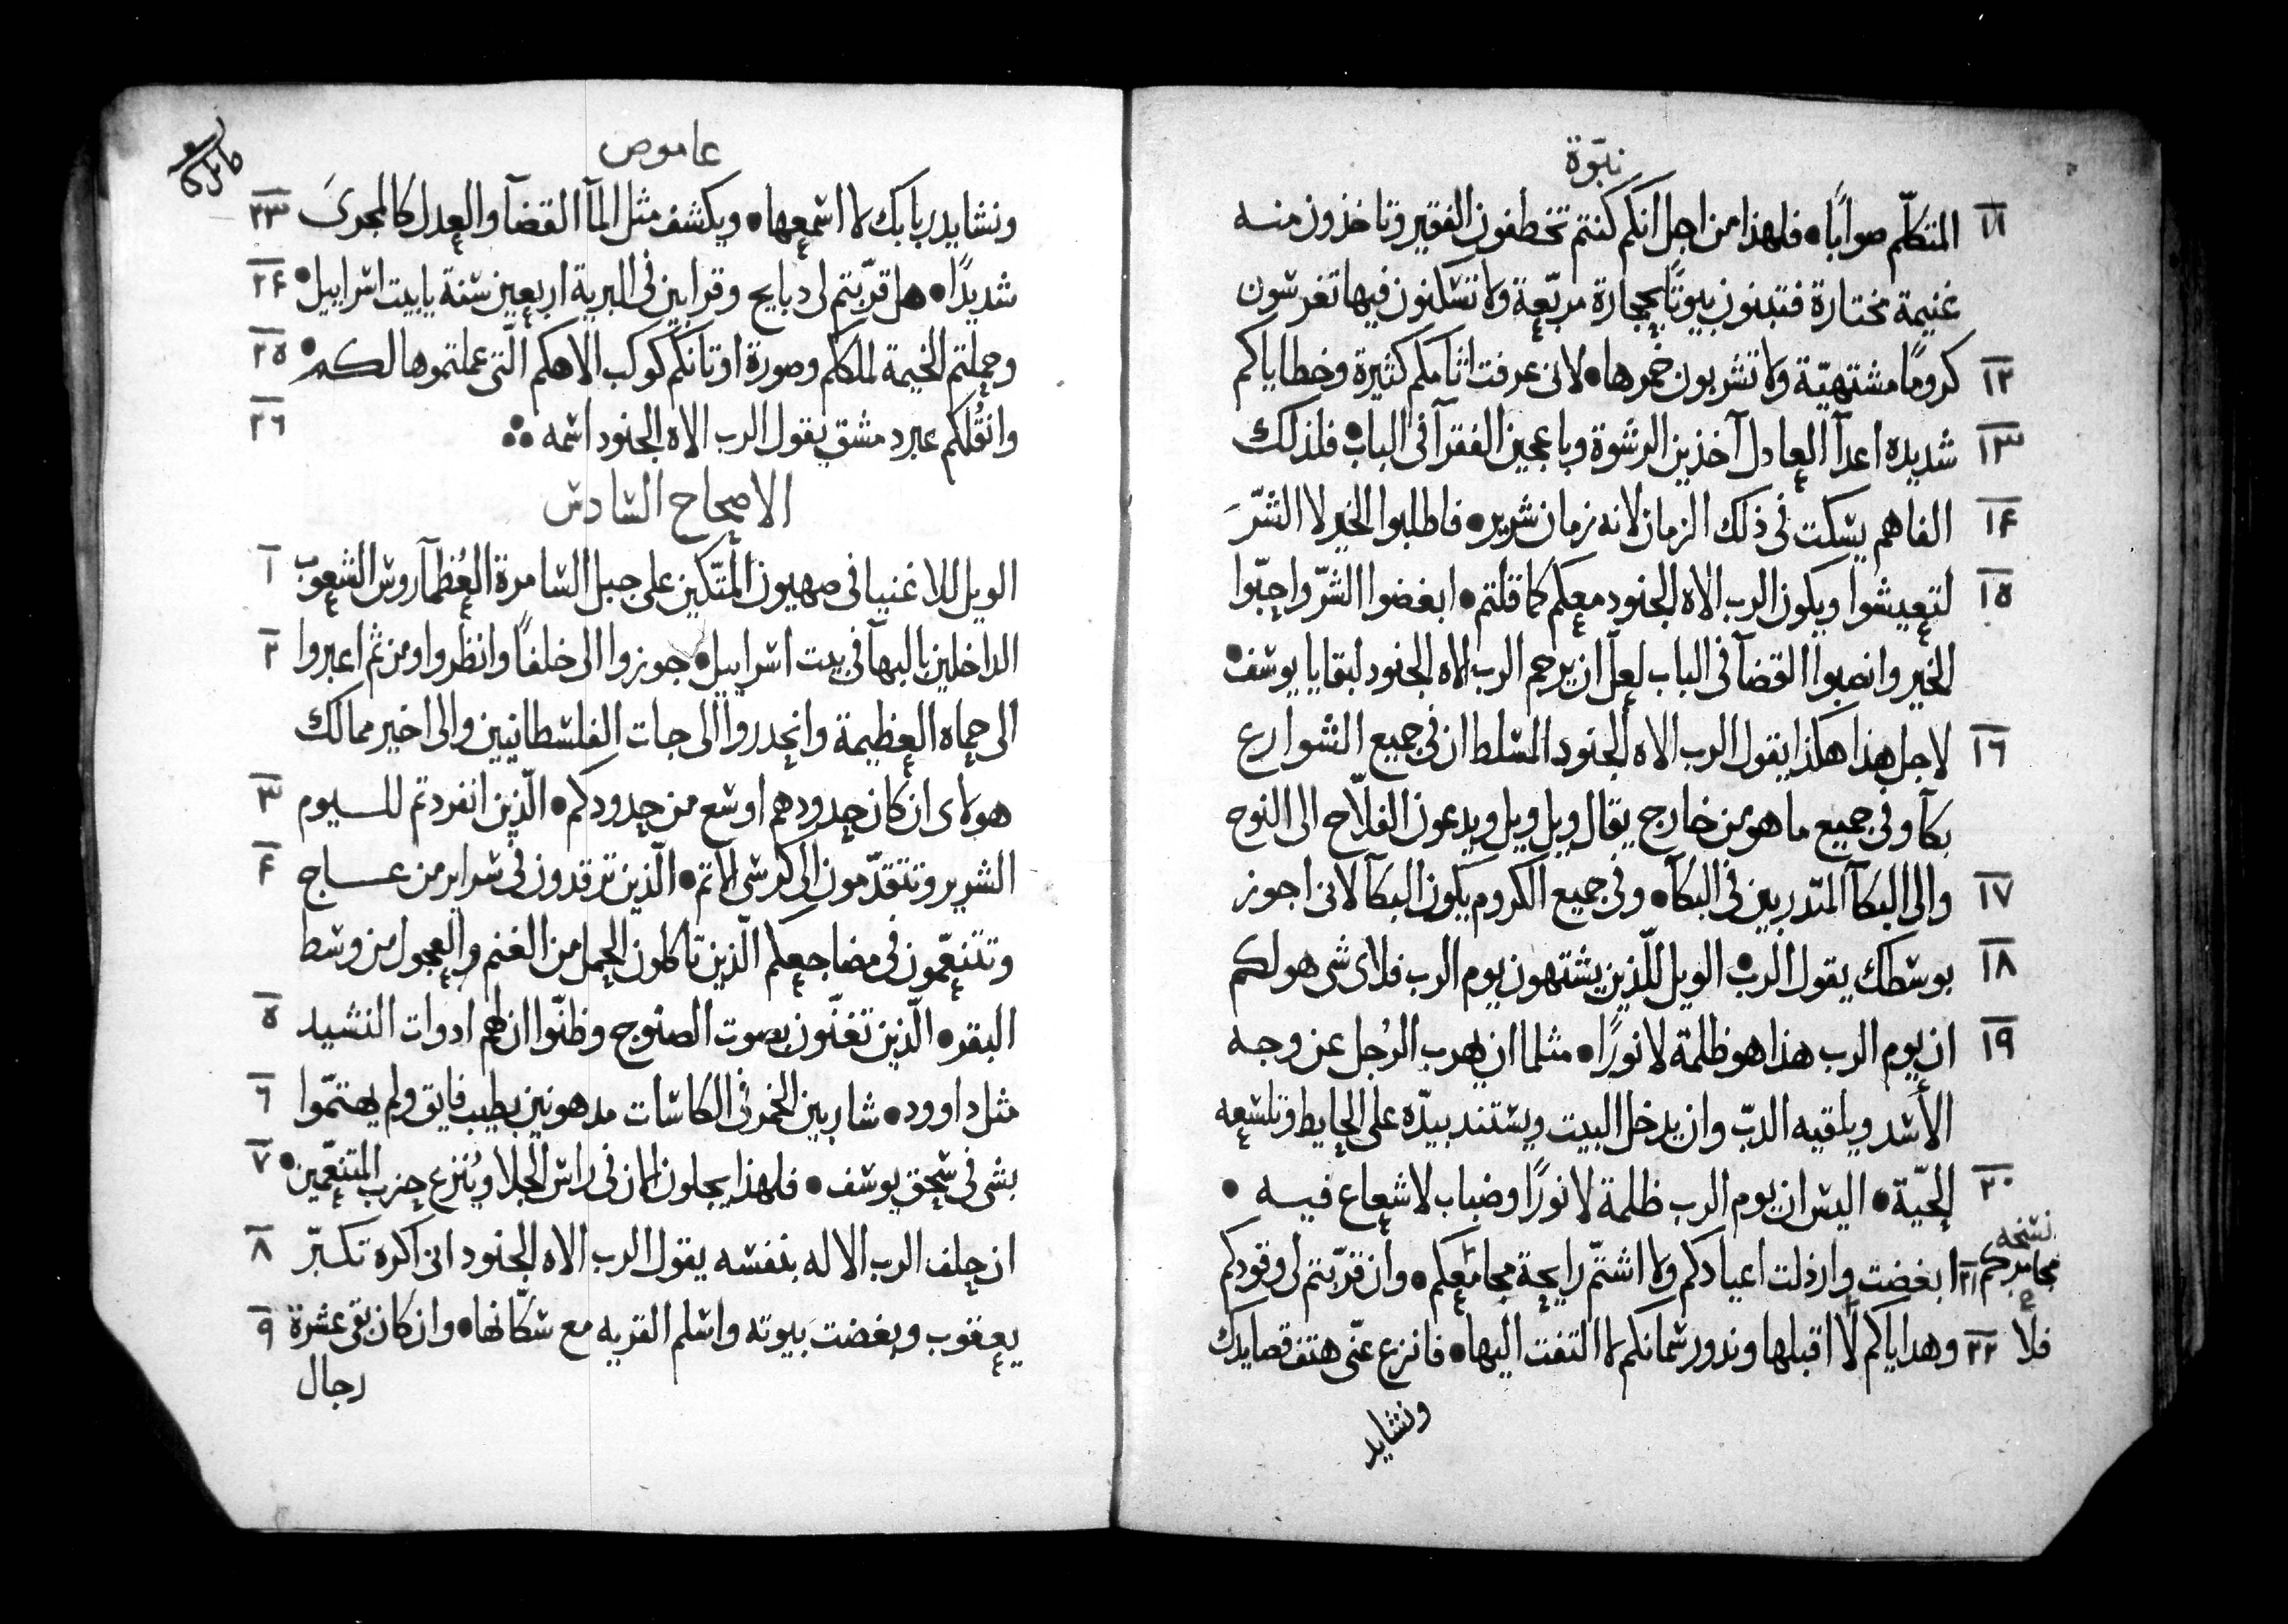 نبوّة
١١ المتكلّم صوابًا• فلهذا من اجل انكم كنتم تخطفون الفقير وتاخذون منه
غنيمة مختارة فتبنون بيوتًا بحجارة مربّعة ولا تسكنون فيها تغرسون
١٢ كرومًا مشتهيّة ولا تشربون خمرها• لانى عرفت اثامكم كثيرة وخطاياكم
١٣ شديده اعدآ العادل آخذين الرشوة وباعجين الفقرآ فى الباب• فلذلك
١٤ الفاهم يسكت فى ذلك الزمان لانه زمان شرير• فاطلبوا الخير لا الشرّ
١٥ لتعيشوا ويكون الرب الاه الجنود معكم كما قلتم• ابغضوا الشرّ واحبّوا
الخير وانصبوا القضآ فى الباب لعلّ ان يرحم الرب الاه الجنود لبقايا يوسف•
١٦ لاجل هذا هكذا يقول الرب الاه الجنود المسلط ان فى جميع الشوارع
بكآ وفى جميع ما هو من خارج يقال ويل ويل ويدعون الفلّاح الى النوح
١٧ والى البكآ المتدربين فى البكآ• وفى جميع الكروم يكون البكآ لانى اجوز
١٨ بوسطك يقول الرب• الويل للّذين يشتهون يوم الرب فلاى شى هو لكم
١٩ ان يوم الرب هذا هو ظلمة لا نورًا• مثلما ان يهرب الرُجل عن وجه
الأسد ويلقيه الدبّ وان يدخل البيت ويستند بيدّه على الحايط وتلسعه
٢٠ الحيّة• اليس ان يوم الرب ظلمة لا نورًا وضباب لا شعاع فيه •
نسخه
مجامركم ٢١ ابغضت وارذلت اعيادكم ولا اشتمّ رايحة مجامعكم• وان قرّبتم لى وقودكم
فلا ٢٢ وهداياكم لا اقبلها وندور سمانكم لا التفت اليها• فانزع عنّى هتف قصايدك
ونشايد
عاموص
ونشايد ربابك لا اسمعها• ويكشف مثل المآ القضآ والعدل كالمجرىَ ٢٣
شديدًا• هل قرّبتم لى دبايح وقرابين فى البرية اربعين سنة يا بيت اسراييل• ٢٤
وحملتم الخيمة لملكام وصورة اوتانكم كوكب الاهكم الّتى عملتموها لكم• ٢٥
وانقُلكم عبر دمشق يقول الرب الاه الجنود اسمه ٢٦
الاصحاح السادس
الويل للاغنيا فى صهيون المتّكين على جبل السامرة العُظمآ روس الشعوب ١
الداخلين بالبهآ فى بيت اسراييل• جوزوا الى خلفًا وانظروا ومن ثم اعبروا ٢
الى حماه العظيمة وانحدروا الى جات الفلسطانيين والى اخير ممالك
هولاى ان كان حدودهم اوسع من حدودكم• الّذين انفردتم لليوم ٣
الشرير وتتقدّمون الى كرسى الاتم• الّذين ترقدون فى سراير من عاج ٤
وتتنعّمون فى مضاجعكم الّذين تاكلون الحمل من الغنم والعجول من وسط
البقر• الّذين تغنّون بصوت الصنوج وظنّوا ان لهم ادوات النشيد ٥
مثل داوود• شاربين الخمر فى الكاسات مدهونين بطيب فايق ولم يهتمّوا ٦
بشى فى سحق يوسف• فلهذا يجلون الان فى راس الجلا ويُنزع حزب المتنعّمين• ٧
ان حلف الرب الاله بنفسه يقول الرب الاه الجنود انى اكره تكبّر ٨
يعقوب وبغضت بيوته واسلم القريه مع سكّانها• وان كان بقى عشرة ٩
رجال